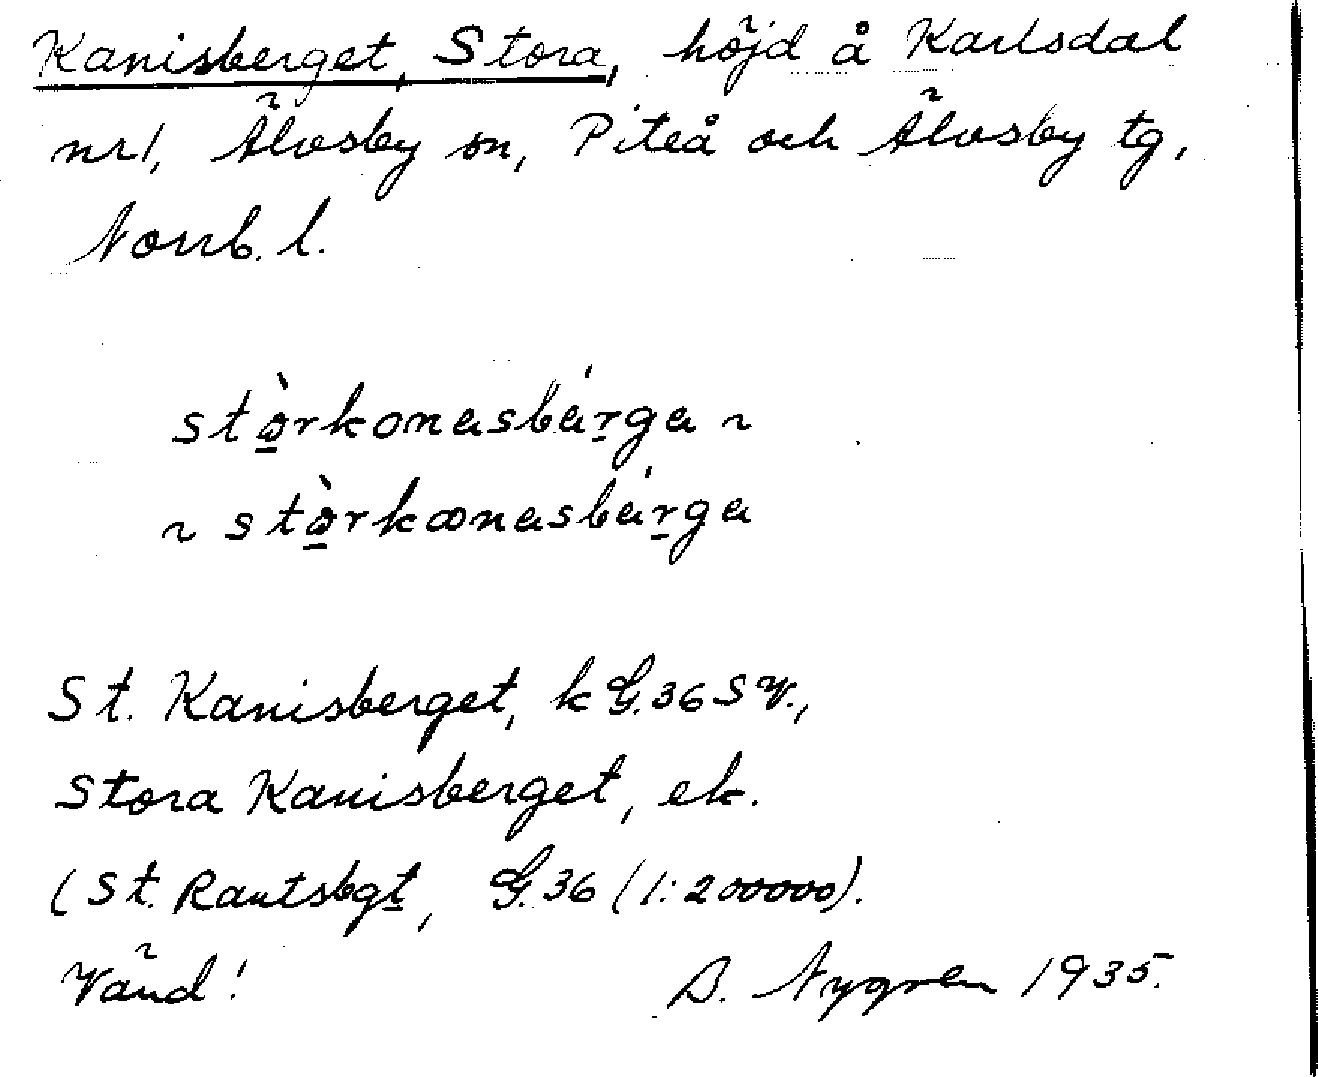 Kanisberget, Stora, höjd å Karlsdal
nr 1, Älvsby sn, Piteå och Älvsby tg,
Norrb. l.
stò̱rkonasbáṟga ~
~ stò̱rkœnasbáṟga
St. Kanisberget, k G. 36 SV.,
Stora Kanisberget, ek.
(St. Rautsbgt, G. 36 (1:200000).
Vänd! B. Nygren 1935.